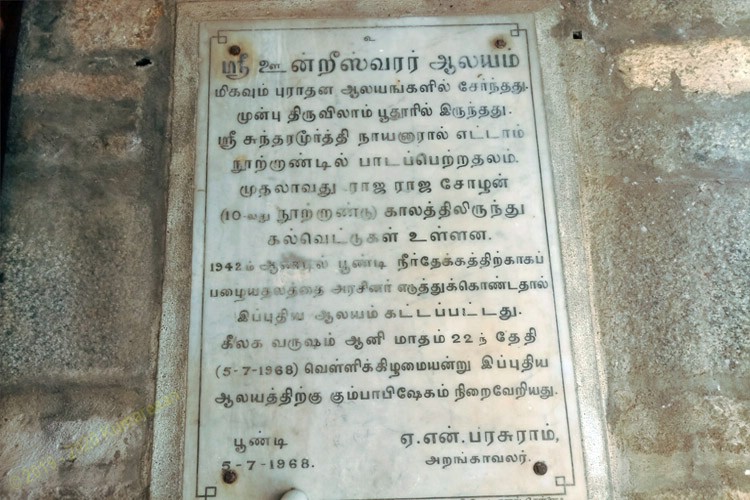 உ
ஸ்ரீ ஊன்றீஸ்வரர் ஆலயம்
மிகவும் புராதன ஆலயங்களில் சேர்ந்தது.
முன்பு திருவிளாம் பூதூரில் இருந்தது.
ஸ்ரீ சுந்தரமூர்த்தி நாயனாரால் எட்டாம்
நூற்றாண்டில் பாடப்பெற்றதலம்.
முதலாவது ராஜ ராஜ சோழன்
(10-வது நூற்றாண்டு) காலத்திலிருந்து
கல்வெட்டுகள் உள்ளன.
1942ம் ஆண்டில் பூண்டி நீர்தேக்கத்திற்காகப்
பழையதலத்தை அரசினர் எடுத்துக்கொண்டதால்
இப்புதிய ஆலயம் கட்டப்பட்டது.
கீலக வருஷம் ஆனி மாதம் 22ந் தேதி
(5-7-1968) வெள்ளிக்கிழமையன்று இப்புதிய
ஆலயத்திற்கு கும்பாபிஷேகம் நிறைவேறியது.
பூண்டி
5-7-1968.
ஏ.என்.பரசுராம்,
அறங்காவலர்.